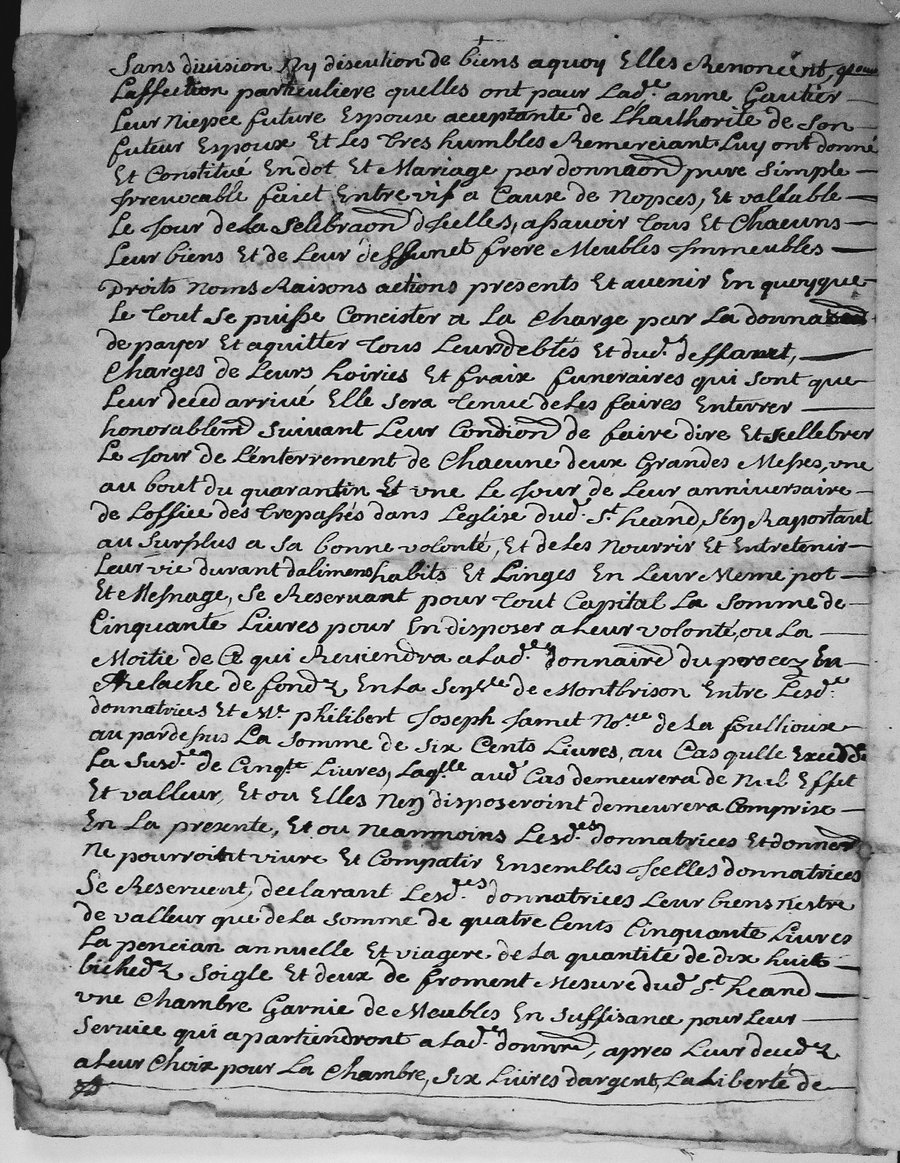 Sans division Ny discution de biens aquoy Elles Renoncent, pour
Laffection particuliere quelles ont pour Lad.e anne Gautier
Leur Niepce future Espouse acceptante de L'hauthorité de Son
futeur Espoux Et Les tres humbles Remerciant Luy ont donné
Et Constitué En dot Et Mariage par donnaon pure Simple
Irrevocable faict Entre vif a Cause de Nopces, Et vallable
Le Jour de la Selebraon dIcelles, assavoir Tous Et Chacuns
Leur biens Et de Leur deffunct frere Meubles Immeubles
Droits Noms Raisons actions presents Et avenir En quoyque
Le tout Se puisse Concister a La Charge par La donna
de payer Et aquitter tous Leurs debtes Et dud. deffunct,
Charges de Leurs hoiries Et fraix funeraires qui sont que
Leur deced arrivé Elle Sera tenue de Les faires Enterrer
honorablem Suivant Leur Condion de faire dire Et Sellebrer
Le Jour de L'enterrement de Chacune deux Grandes Messes, une
au bout du quarantin Et une Le Jour de Leur anniversaire
de Loffice des trepassés dans Leglise dud. St. heand, Sen Raportant
au Surplus a Sa bonne volonté, Et de Les Nourrir Et Entretenir
Leur vie durant dalimens habits Et Linges En Leur Meme pot
Et Mesnage, Se Reservant pour tout Capital La Somme de
Cinquante Livres pour En disposer a Leur volonté, ou La
Moitie de Ce qui Reviendra a Lad.e donnaire du procez En
Relache de fondz En La Sen.lle de Montbrison Entre Lesd.e
donnatrices Et M.e philibert Joseph Jamet No.re de La foullioux
au pardessus La Somme de Six Cents Livres, au Cas qulle Excedde
La Susd.e de Cinq.te Livres, Laq.lle aud Cas demeurera de Nul Effet
Et valleur, Et ou Elles Nen disposeroint demeurera Comprise
En La presente, Et ou Neanmoins Lesd.es donnatrices Et donner
Ne pourroitit vivre Et Compatir Ensembles Icelles donnatrices
Se Reservent, declarant Lesd.es donnatrices Leur biens nestre
de valleur que de La Somme de quatre Cents Cinquante Livres
La pencian annuelle Et viagere de La quantité de dix huit
bichedz Soigle Et deux de froment Mesure dud St. heand
une Chambre Garnie de Meubles En Suffisance pour Leur
Service qui apartiendront a Lad.e donnre, apres Leur decedz
a Leur Choix pour La Chambre, Six Livres dargent, La Liberté de